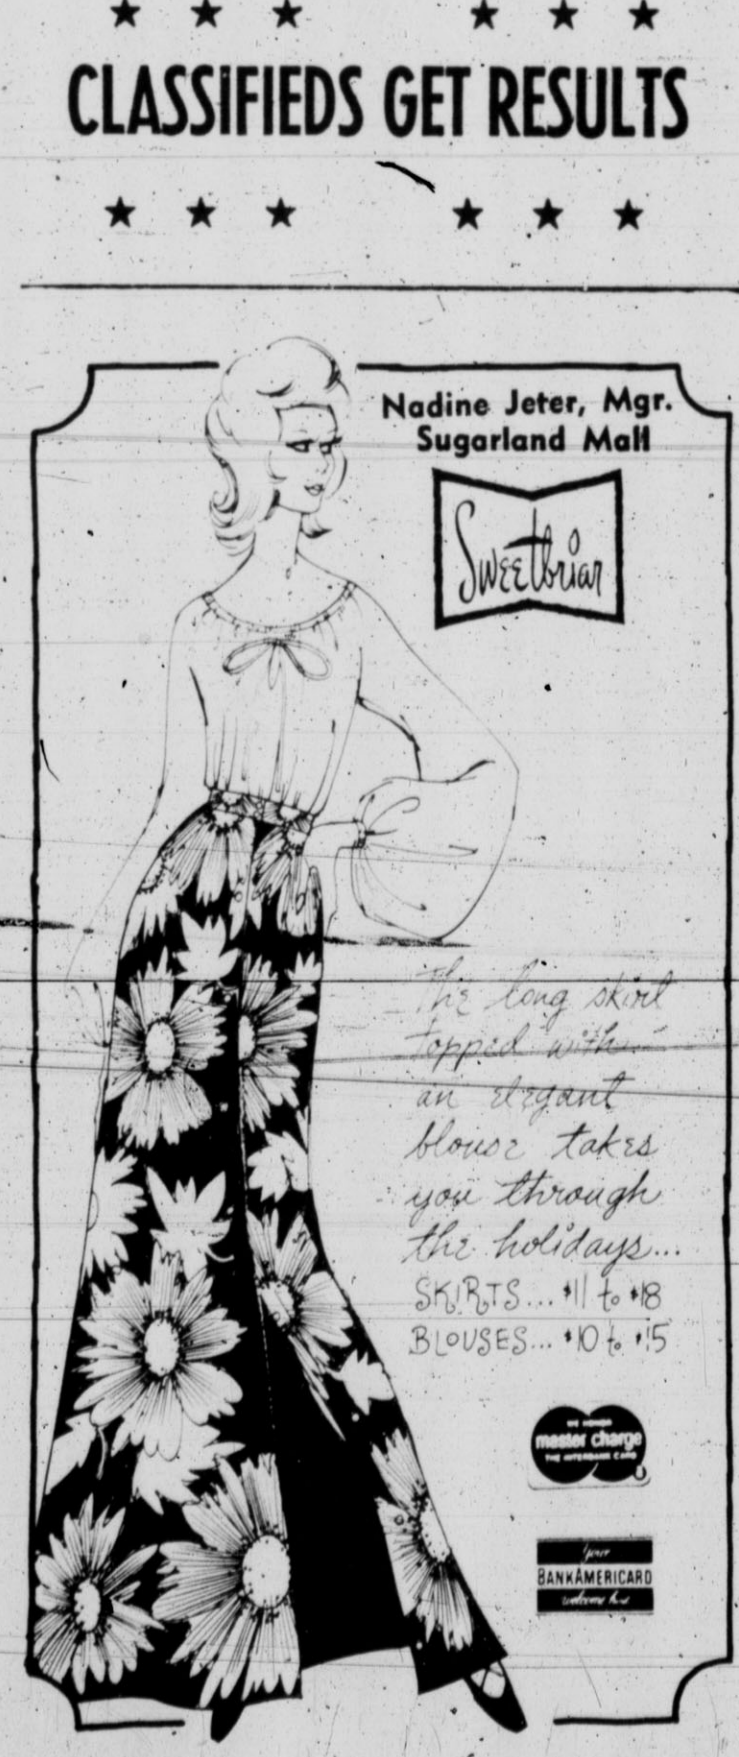 CLASSIFIEDS GET RESULTS
Nadine Jeter, Mgr.
Sugarland Mall
Sweetbriar
The long skirt
topped with
an elegant
blouse takes
you through
the holidays...
SKIRTS... $11 to $18
BLOUSES... $10 to $15
WE HONOR
master charge
THE INTERBANK CARD
Your
BANKAMERICARD
welcome here